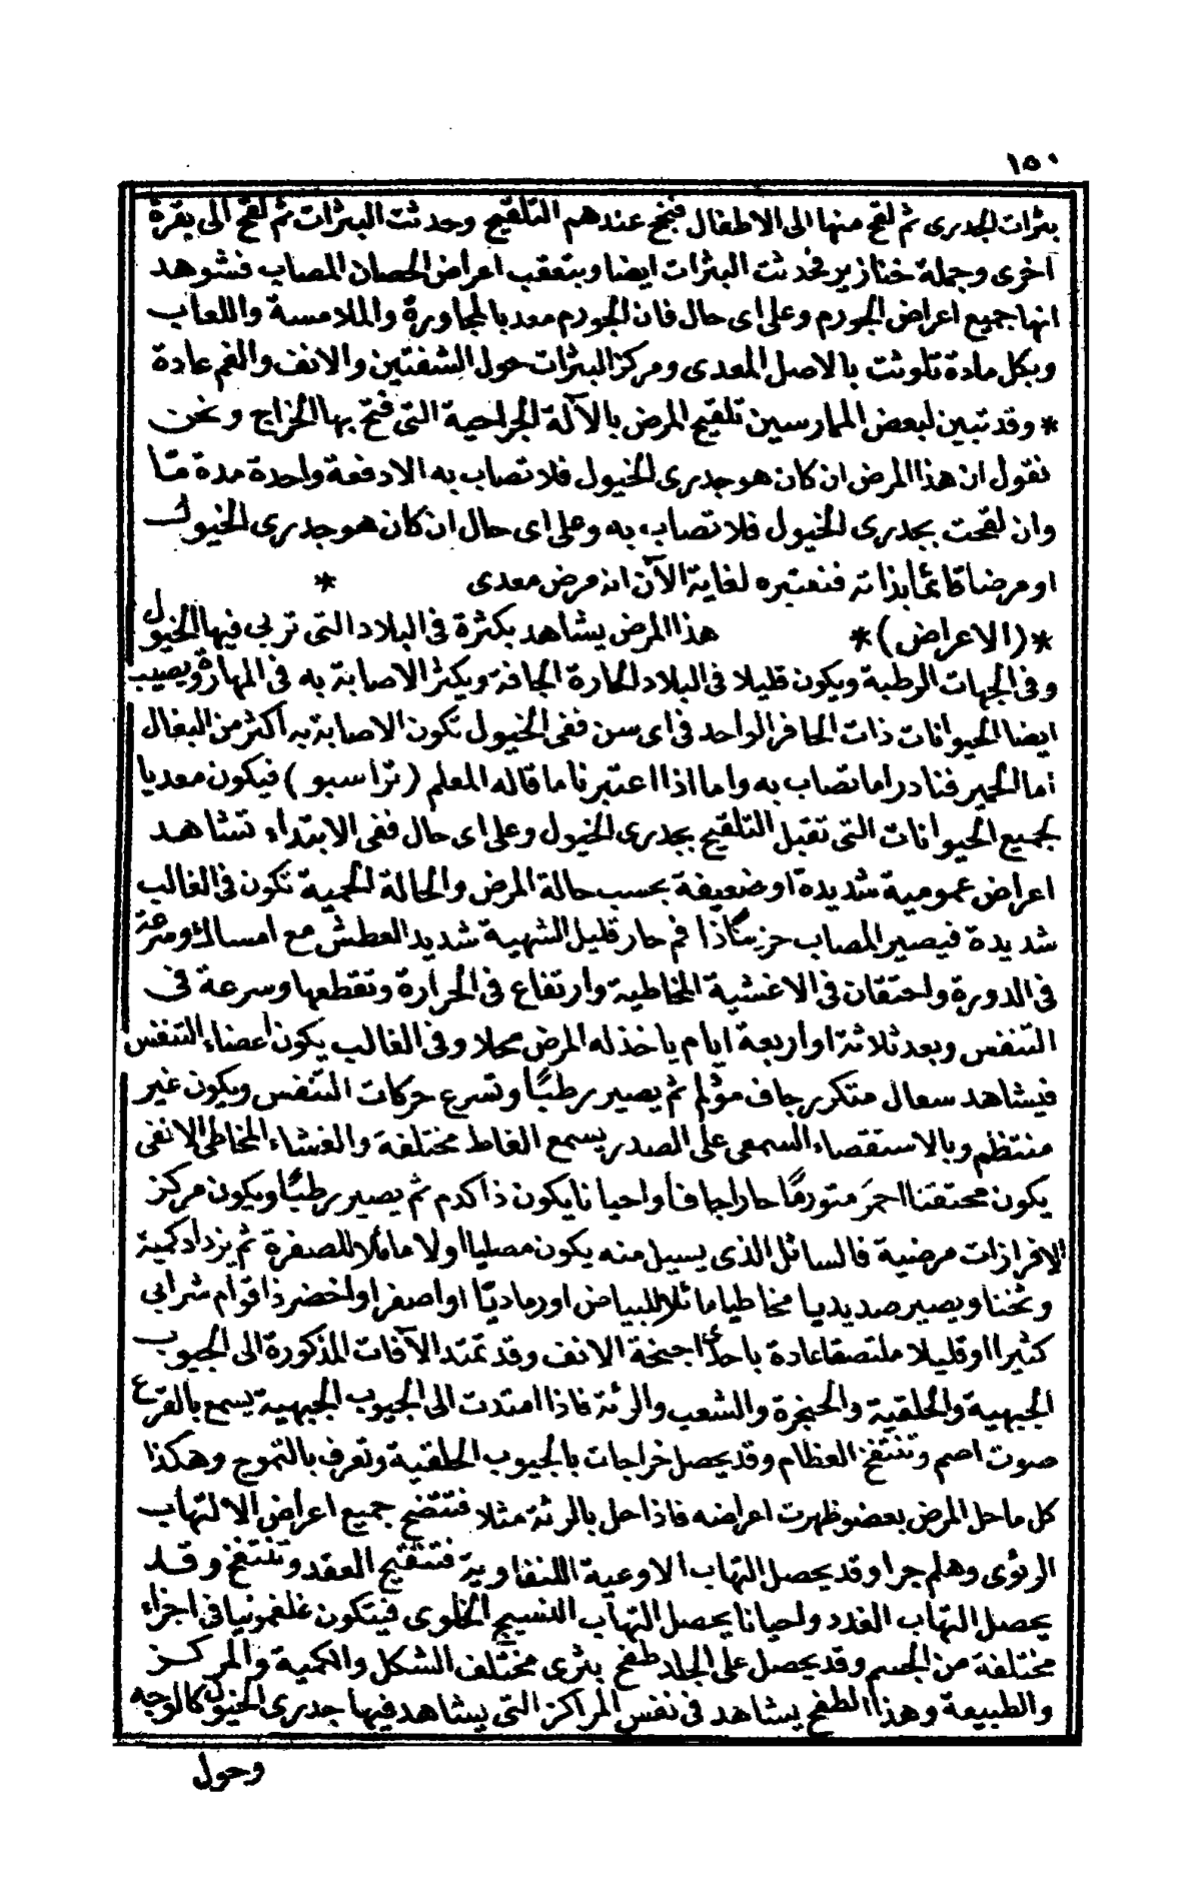 ١٥٠
بثرات الجدرى ثم لقح منها الى الاطفال فنجح عندهم التلقيح وحدثت البثرات ثم لقح الى بقرة
اخرى وجملة خنازير فحدثت البثرات ايضا وبتعقب اعراض الحصان المصاب فشوهد
انها جميع اعراض الجورم وعلى اى حال فان الجورم معد بالمجاورة والملامسة واللعاب
وبكل مادة تلوثت بالاصل المعدى ومركز البثرات حول الشفتين والانف والفم عادة
* وقد تبين لبعض الممارسين تلقيح المرض بالآلة الجراحية التى فتح بها الخراج ونحن
نقول ان هذا المرض ان كان هو جدرى الخيول فلا تصاب به الا دفعة واحدة مدة ما
وان لقحت بجدرى الخيول فلا تصاب به وعلى اى حال ان كان هو جدرى الخيول
او مرضا قائما بذاته فنعتبره لغاية الآن انه مرض معدى *
* (الاعراض) * هذا المرض يشاهد بكثرة فى البلاد التى تربى فيها الخيول
وفى الجهات الرطبة ويكون قليلا فى البلاد الحارة الجافة ويكثر الاصابة به فى المهارة ويصيب
ايضا الحيوانات ذات الحافر الواحد فى اى سن ففى الخيول تكون الاصابة به اكثر من البغال
اما الحمير فنادرا ما تصاب به واما اذا اعتبرنا ما قاله المعلم (تراسبو) فيكون معديا
لجميع الحيوانات التى تقبل التلقيح بجدرى الخيول وعلى اى حال ففى الابتداء تشاهد
اعراض عمومية شديدة او ضعيفة بحسب حالة المرض والحالة الحمية تكون فى الغالب
شديدة فيصير المصاب حزينًا ذا فم حار قليل الشهية شديد العطش مع امساك وسرعة
فى الدورة واحتقان فى الاغشية المخاطية وارتفاع فى الحرارة وتقطعها وسرعة فى
التنفس وبعد ثلاثة او اربعة ايام ياخذ له المرض محلا وفى الغالب يكون اعضاء التنفس
فيشاهد سعال متكرر جاف مؤلم ثم يصير رطبًا وتسرع حركات التنفس ويكون غير
منتظم وبالاستقصاء السمعى على الصدر يسمع الغاط مختلفة والغشاء المخاطى الانفى
يكون محتقنا احمرَ متورمًا حارا جافا واحيانا يكون ذا كدم ثم يصير رطبًا ويكون مركز
الافرازات مرضية فالسائل الذى يسيل منه يكون مصليا اولا مائلا للصفرة ثم يزداد كمية
وثخنا ويصير صديديا مخاطيا مائلا للبياض او رماديًا او اصفر او اخضر ذا قوام شرابى
كثيرا او قليلا ملتصقا عادة باحدى اجنحة الانف وقد تمتد الآفات المذكورة الى الجيوب
الجبهية والحلقية والحنجرة والشعب والرئة فاذا امتدت الى الجيوب الجبهية يسمع بالقرع
صوت اصم وتنتفخ العظام وقد يحصل خراجات بالجيوب الحلقية وتعرف بالتموج وهكذا
كل ما حل المرض بعضو ظهرت اعراضه فاذا حل بالرئة مثلا فتتضح جميع اعراض الالتهاب
الرئوى وهلم جرا وقد يحصل التهاب الاوعية اللنفاوية فتتقيح العقد وتنتفخ وقد
يحصل التهاب الغدد واحيانا يحصل التهاب النسيج الخلوى فيتكون غلغمونيا فى اجزاء
مختلفة من الجسم وقد يحصل على الجلد طفح بثرى مختلف الشكل والكمية والمركز
والطبيعة وهذا الطفح يشاهد فى نفس المراكز التى يشاهد فيها جدرى الخيول كالوجه
وحول